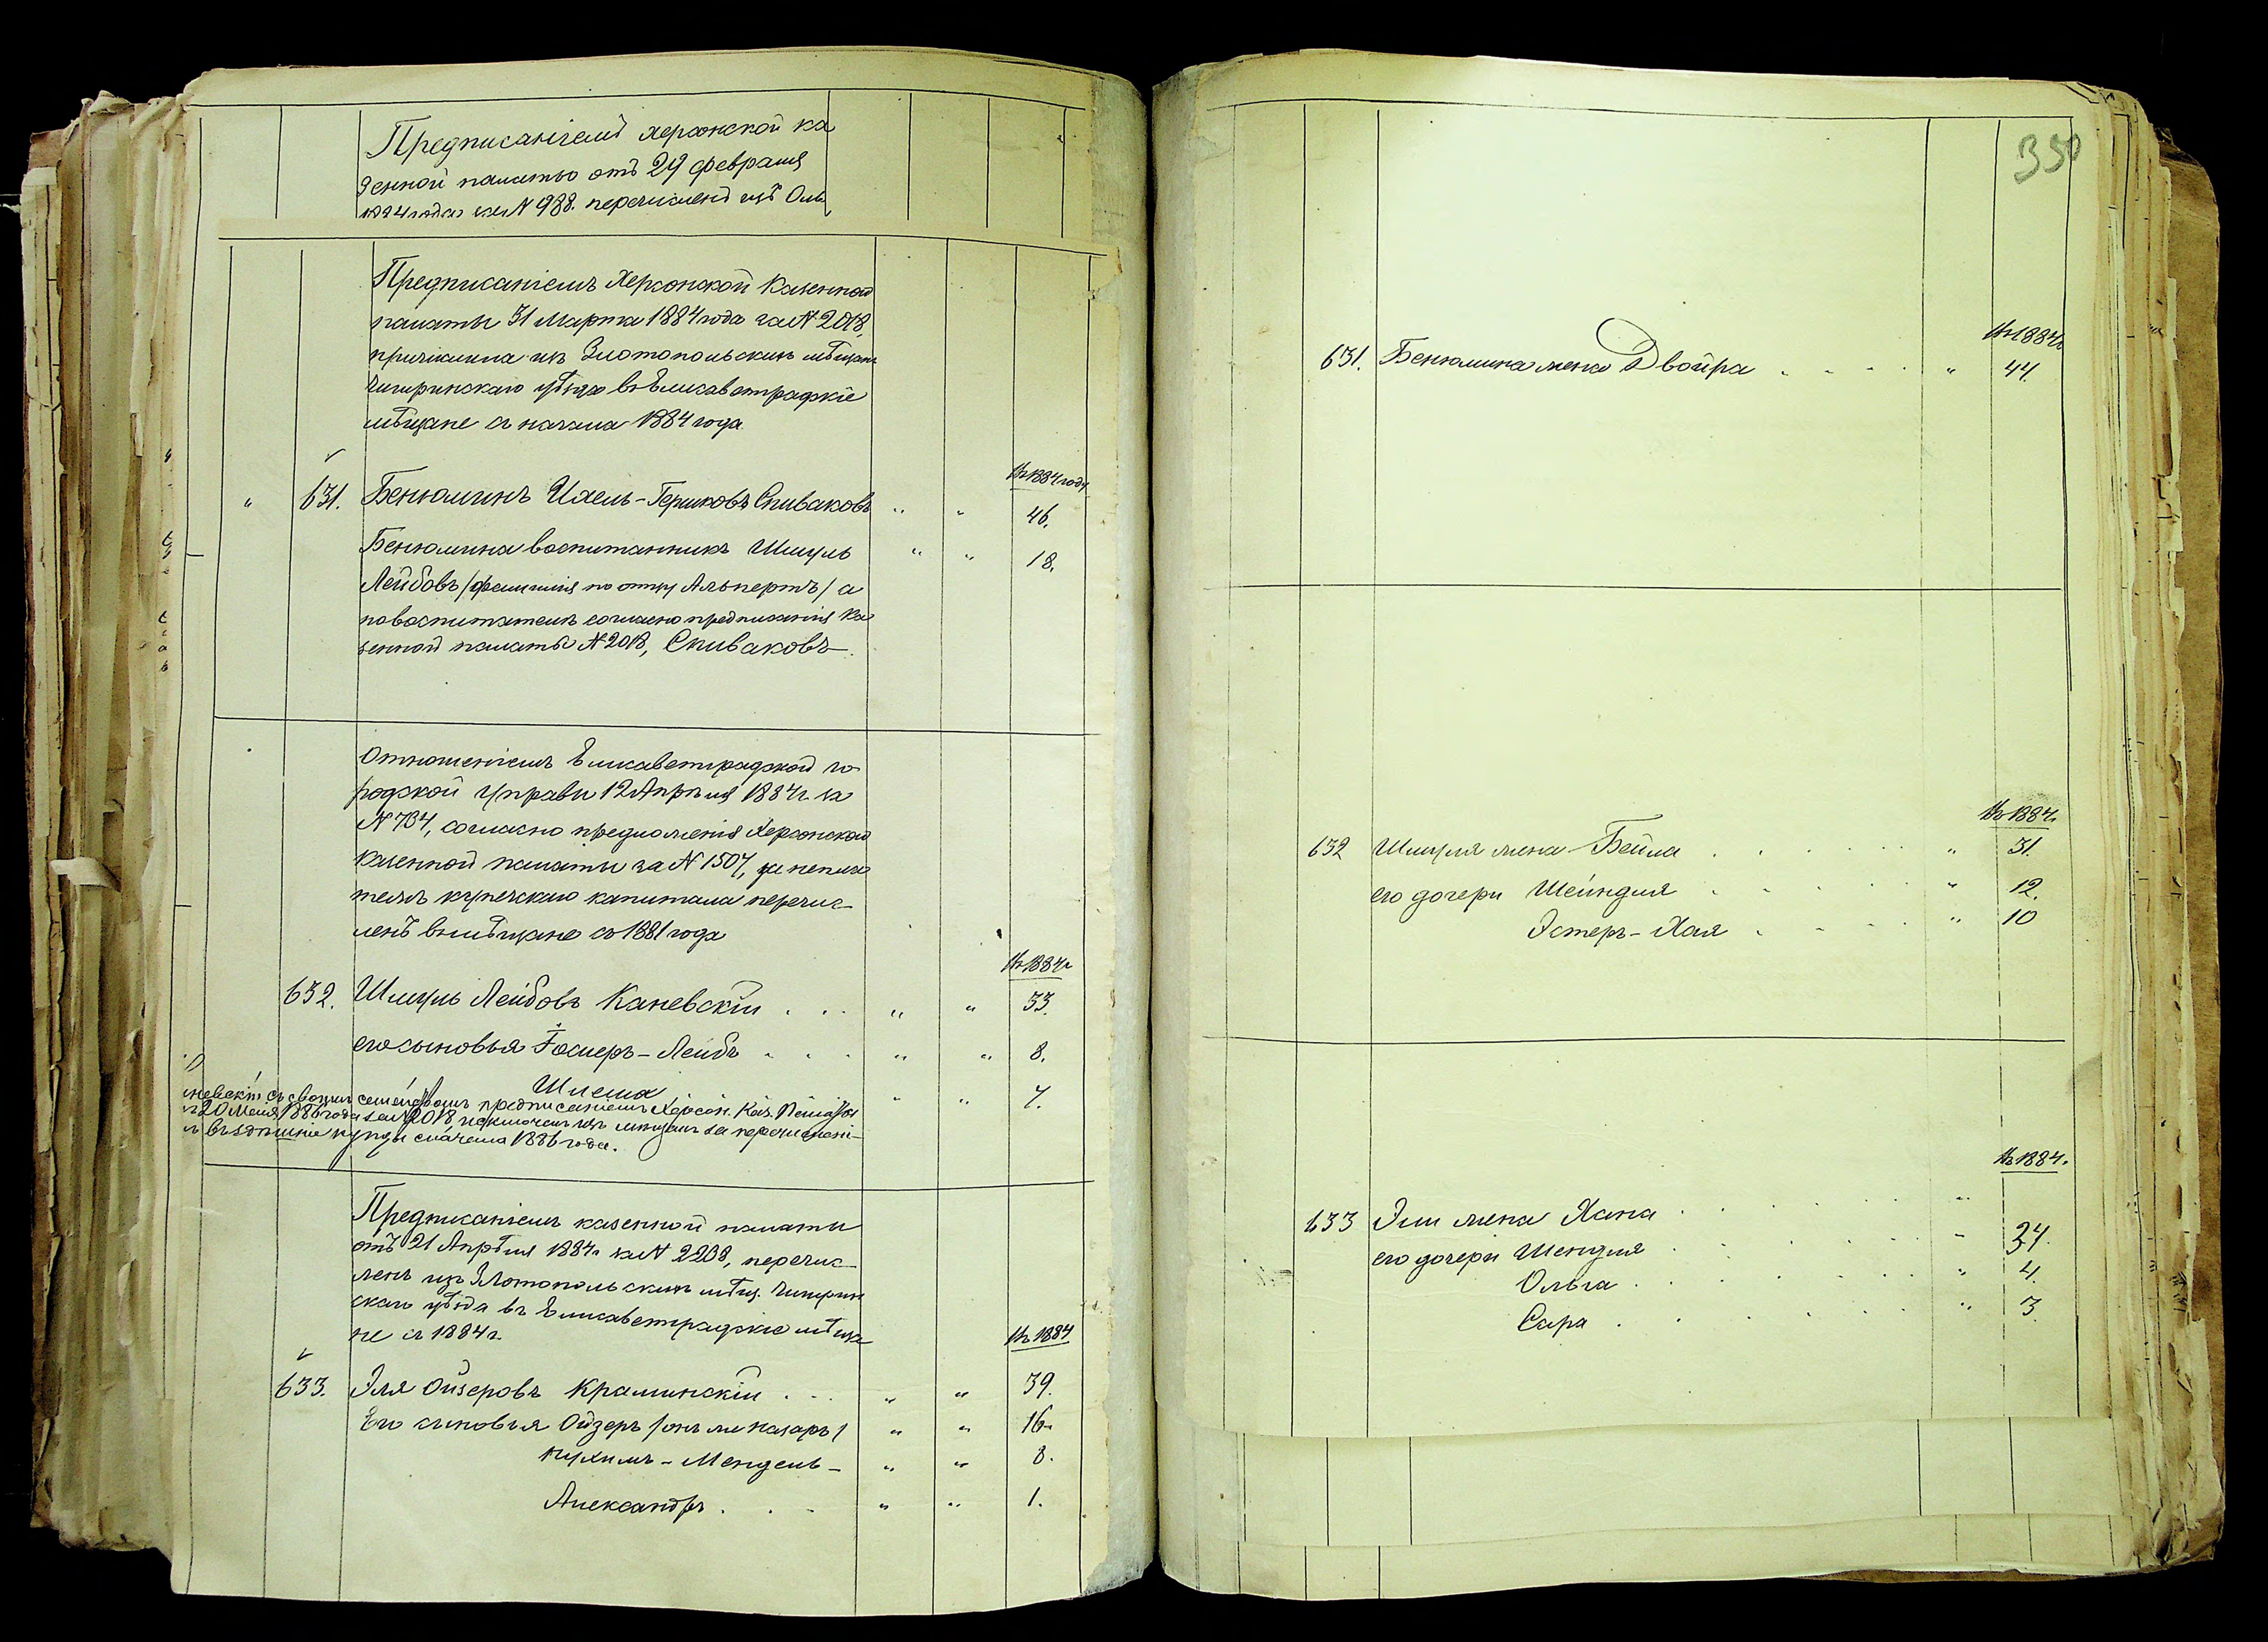 Предписаніемъ херсонской ка
зенной палаты отъ 29 февраля
1884 года за № 988. перечисленъ изъ Оль
Предписаніемъ Херсонской Казенной
палаты 31 Марта 1884 года за № 2018,
причислена изъ Злотопольскихъ мѣщанъ
Чигиринскаго уѣзда въ Елисаветградскіе
мѣщане съ начала 1884 года
Въ 1884 году
" 631. Бенюминъ Ихель-Гершковъ Спиваковъ " " 46.
Бенюмина воспитанникъ Шмуль " " 18.
Лейбовъ /фамилія по отцу Альпертъ/ а
по воспитателѣ согласно предписанія Ка
зенной палаты № 2018, Спиваковъ.
Отношеніемъ Елисаветградской го
родской управы 12 Апрѣля 1884 г. за
№ 734, согласно предложенія Херсонской
Казенной палаты за № 1507, за неплате
жемъ купеческаго капитала перечис-
ленъ въ мѣщане съ 1881 года
Въ 1884 г
632. Шмуль Лейбовъ Каневскій . . . " " 33.
его сыновья Іосперъ-Лейбъ . . . " " 8.
Шлема " " 7.
невскій съ своимъ семействомъ предписаніемъ Херсон. Каз. Палаты
20 1886 года за № 2018 исключенъ изъ мѣщанъ за перечислені-
въ здѣшніе купцы съ начала 1886 года.
Предписаніемъ казенной палаты
отъ 21 Апрѣля 1884 г за № 2208, перечис-
ленъ изъ Злотопольскихъ мѣщ. Чигирин
скаго уѣзда въ Елисаветградскіе мѣща
не съ 1884 г.
Въ 1884
633. Эля Ойзеровъ Краминскій . . . " " 39.
Его сыновья Ойзеръ /онъ же Назаръ/ " " 16.
Нухимъ-Мендель- " " 8.
Александръ . . . " " 1.
350
Въ 1884 г
631. Бенюмина жена Двойра . . . . " 44.
Въ 1884.
632 Шмуля жена Бейла . . . . . . " 31.
его дочери Шейндля . . . . . " 12.
Эстеръ-Хая . . . . " 10
Въ 1884.
633 Эли жена Хана . . . . . . "
его дочери Шендля . . . . . . " 34.
Ольга . . . . . . . " 4.
Сара . . . . . . . " 3.